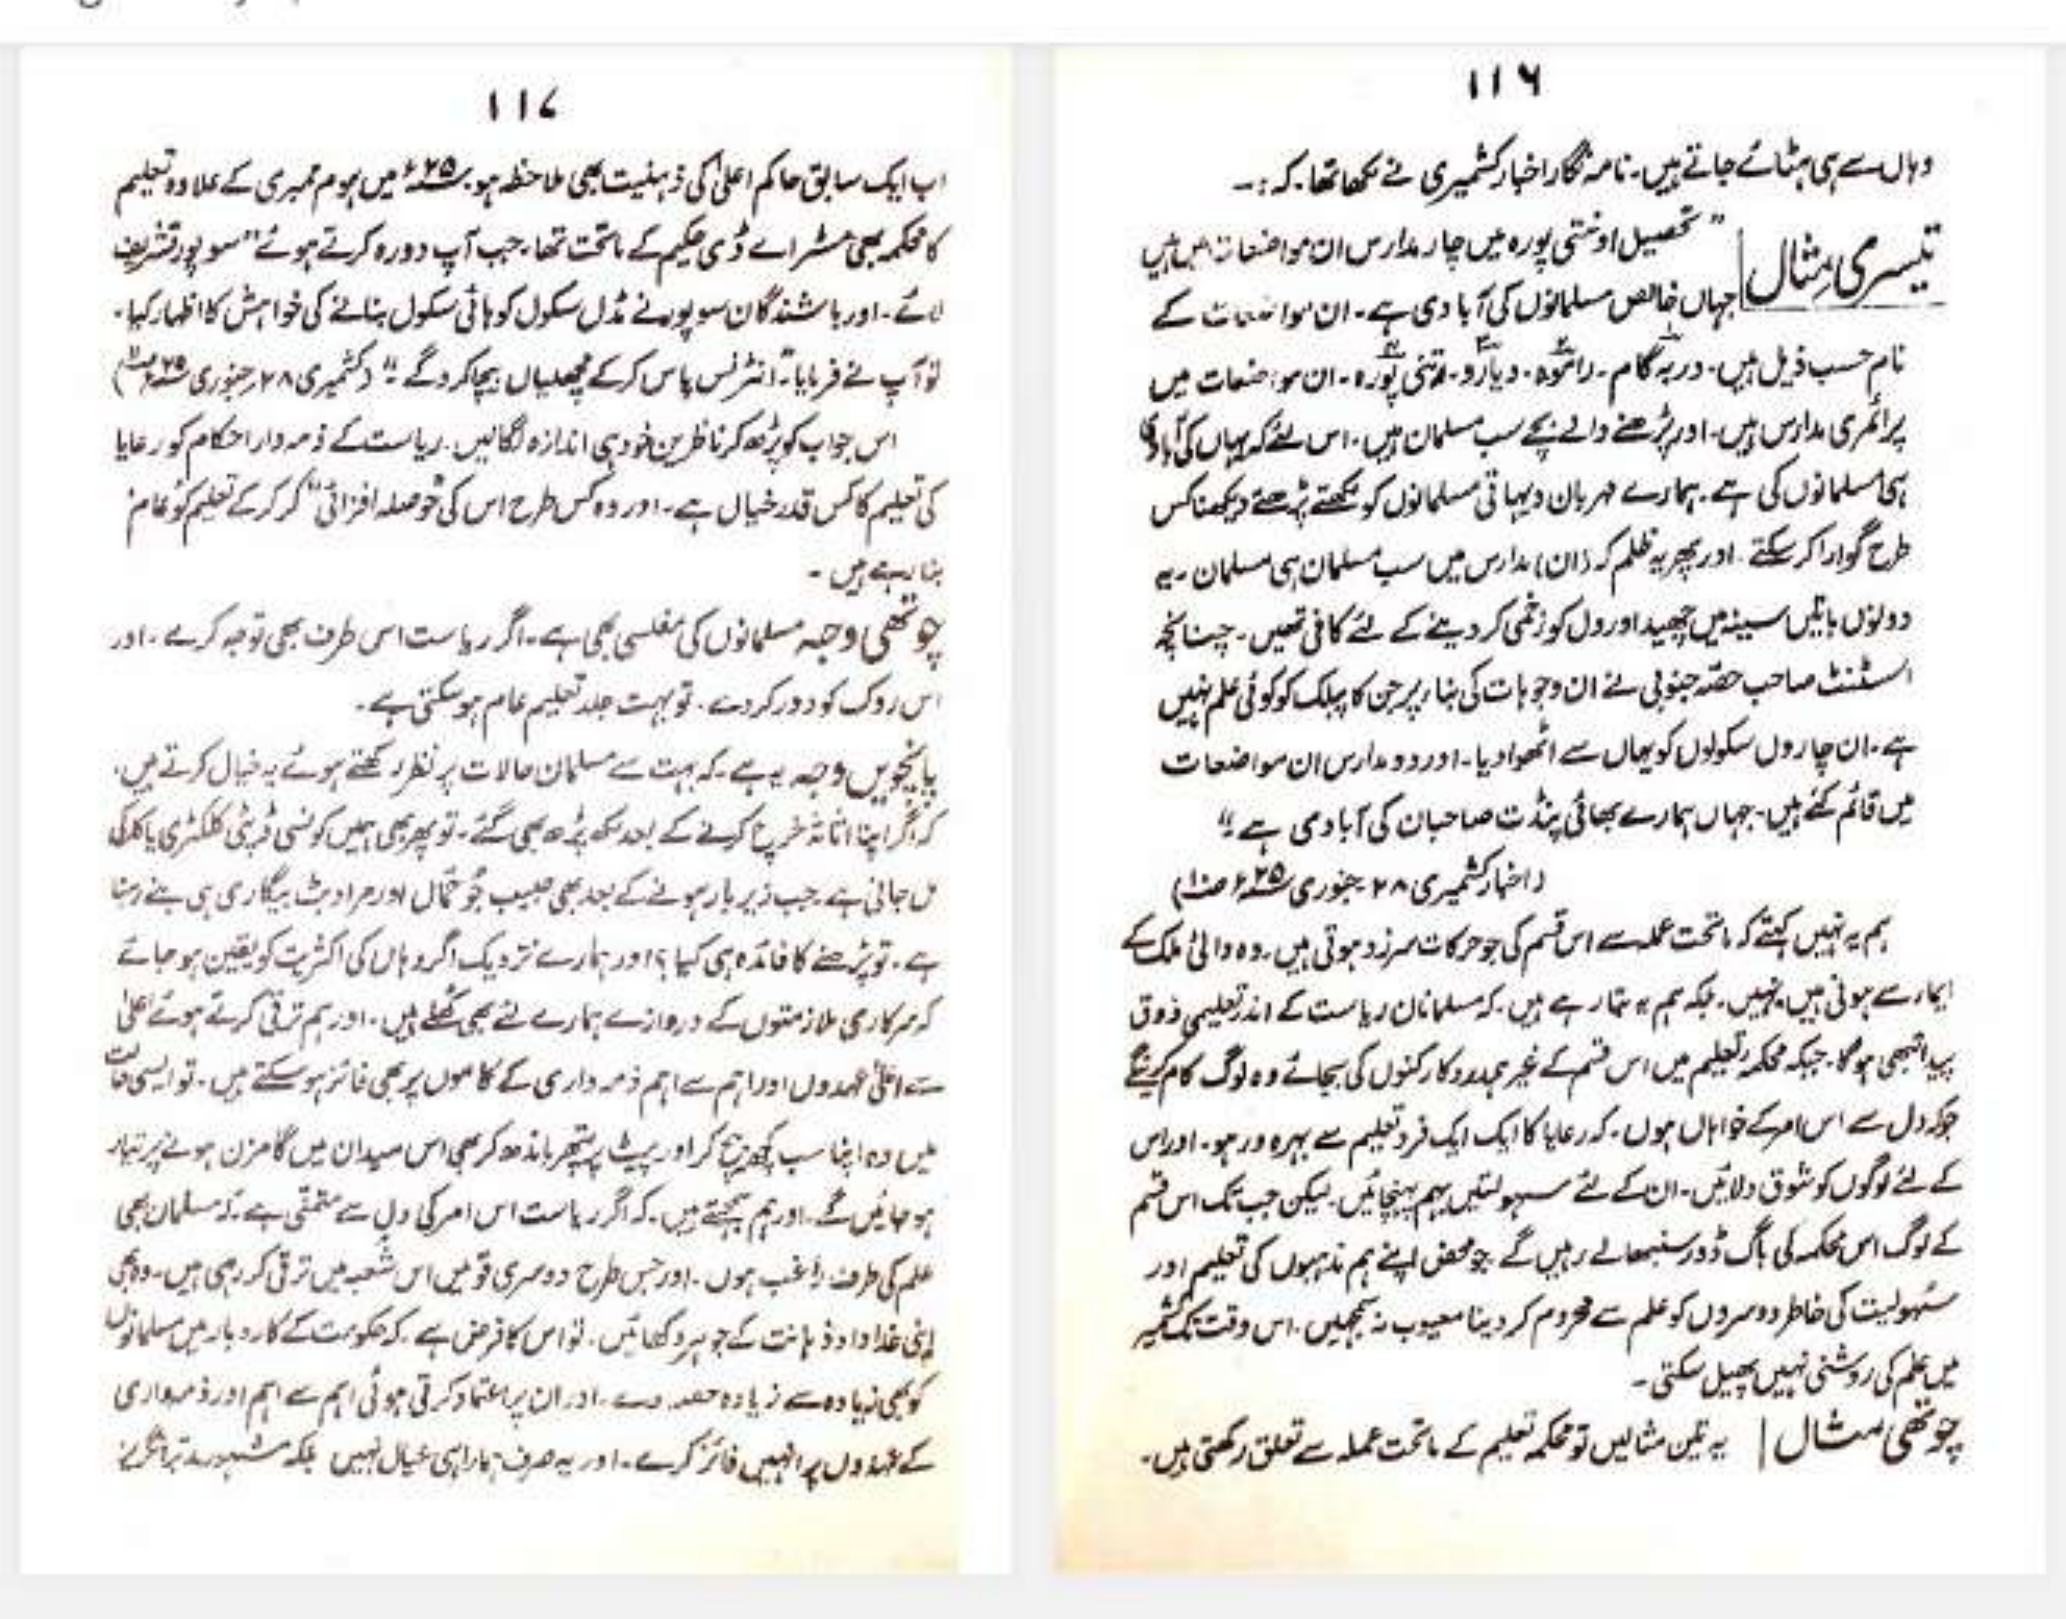 ۱۱۶
وہاں سے ہی ہٹائے جاتے ہیں۔ نامہ نگار اخبار کشمیری نے لکھا تھا۔ کہ :۔
تیسری مثال | " تحصیل اونتی پورہ میں چار مدارس ان مواضعات میں ہیں
جہاں خالص مسلمانوں کی آبادی ہے۔ ان مواضعات کے
نام حسب ذیل ہیں۔ دربہ گام۔ راموہ۔ دیارو۔ پورہ۔ ان مواضعات میں
پرائمری مدارس ہیں۔ اور پڑھنے والے بچے سب مسلمان ہیں۔ اس لئے کہ یہاں کی آبادی
ہی مسلمانوں کی ہے۔ ہمارے مہربان دیہاتی مسلمانوں کو لکھتے پڑھتے دیکھنا کس
طرح گوارا کر سکتے۔ اور پھر یہ ظلم کہ (ان) مدارس میں سب مسلمان ہی مسلمان۔ یہ
دونوں باتیں سینہ میں چھید اور دل کو زخمی کر دینے کے لئے کافی تھیں۔ چنانچہ
اسسٹنٹ صاحب حصّہ جنوبی نے ان وجوہات کی بناء پر جن کا پبلک کو کوئی علم نہیں
ہے۔ ان چاروں سکولوں کو یہاں سے اٹھوا دیا۔ اور دو مدارس ان مواضعات
میں قائم کئے ہیں۔ جہاں ہمارے بھائی پنڈت صاحبان کی آبادی ہے "
(اخبار کشمیری ۲۸ جنوری ۲۵ء ص۱۰)
ہم یہ نہیں کہتے کہ ماتحت عملہ سے اس قسم کی جو حرکات سرزد ہوتی ہیں۔ وہ والئ ملک کے
ایماء سے ہوتی ہیں۔ نہیں۔ بلکہ ہم یہ بتا رہے ہیں۔ کہ مسلمانان ریاست کے اندر تعلیمی ذوق
پیدا تبھی ہو گا۔ جبکہ محکمہ تعلیم میں اس قسم کے غیر ہمدرد کارکنوں کی بجائے وہ لوگ کام کرینگے
جو کہ دل سے اس امر کے خواہاں ہوں۔ کہ رعایا کا ایک ایک فرد تعلیم سے بہرہ ور ہو۔ اور اس
کے لئے لوگوں کو شوق دلائیں۔ ان کے لئے سہولتیں بہم پہنچائیں۔ لیکن جب تک اس قسم
کے لوگ اس محکمہ کی باگ ڈور سنبھالے رہیں گے جو محض اپنے ہم مذہبوں کی تعلیم اور
سہولیت کی خاطر دوسروں کو علم سے محروم کر دینا معیوب نہ سمجھیں۔ اس وقت تک کشمیر
میں علم کی روشنی نہیں پھیل سکتی۔
چوتھی مثال | یہ تین مثالیں تو محکمہ تعلیم کے ماتحت عملہ سے تعلق رکھتی ہیں۔
۱۱۷
اب ایک سابق حاکم اعلیٰ کی ذہنیت بھی ملاحظہ ہو۔ ۲۵ء میں ہوم ممبری کے علاوہ تعلیم
کا محکمہ بھی مسٹر اے ڈی حکیم کے ماتحت تھا۔ جب آپ دورہ کرتے ہوئے "سوپور تشریف
لائے۔ اور باشندگان سوپور نے مڈل سکول کو ہائی سکول بنانے کی خواہش کا اظہار کیا۔
تو آپ نے فرمایا۔ "انٹرنس پاس کر کے مچھلیاں بیچا کرو گے " (کشمیری ۲۸ جنوری ۲۵ء)
اس جواب کو پڑھ کر ناظرین خود ہی اندازہ لگا لیں۔ ریاست کے ذمہ دار احکام کو رعایا
کی تعلیم کا کس قدر خیال ہے۔ اور وہ کس طرح اس کی "حوصلہ افزائی" کر کر کے تعلیم کو عام
بنا رہے ہیں۔
چوتھی وجہ مسلمانوں کی مفلسی بھی ہے۔ اگر ریاست اس طرف بھی توجہ کرے۔ اور
اس روک کو دور کر دے۔ تو بہت جلد تعلیم عام ہو سکتی ہے۔
پانچویں وجہ یہ ہے۔ کہ بہت سے مسلمان حالات پر نظر رکھتے ہوئے یہ خیال کرتے ہیں۔
کہ اگر اپنا اثاثہ خرچ کرنے کے بعد لکھ پڑھ بھی گئے۔ تو پھر بھی ہمیں کونسی ڈپٹی کلکٹری یا کلرکی
مل جانی ہے۔ جب زیر بار ہونے کے بعد بھی حبیب جُو حمّال اور مراد بٹ بیگاری ہی بنے رہنا
ہے۔ تو پڑھنے کا فائدہ ہی کیا؟ اور ہمارے نزدیک اگر وہاں کی اکثریت کو یقین ہو جائے
کہ سرکاری ملازمتوں کے دروازے ہمارے لئے بھی کھلے ہیں۔ اور ہم ترقی کرتے ہوئے اعلیٰ
سے اعلیٰ عہدوں اور اہم سے اہم ذمہ داری کے کاموں پر بھی فائز ہو سکتے ہیں۔ تو ایسی حالت
میں وہ اپنا سب کچھ بیچ کر اور پیٹ پر پتھر باندھ کر بھی اس میدان میں گامزن ہونے پر تیار
ہو جائیں گے۔ اور ہم سمجھتے ہیں۔ کہ اگر ریاست اس امر کی دل سے متمنّی ہے۔ کہ مسلمان بھی
علم کی طرف راغب ہوں۔ اور جس طرح دوسری قومیں اس شعبہ میں ترقی کر رہی ہیں۔ وہ بھی
اپنی خداداد ذہانت کے جوہر دکھائیں۔ تو اس کا فرض ہے۔ کہ حکومت کے کاروبار میں مسلمانوں
کو بھی زیادہ سے زیادہ حصہ دے۔ اور ان پر اعتماد کرتی ہوئی اہم سے اہم اور ذمہ داری
کے عہدوں پر انہیں فائز کرے۔ اور یہ صرف ہمارا ہی خیال نہیں بلکہ مشہور مدبر